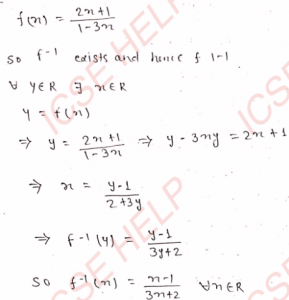 f(x) = 2x+1 / 1-3x
So f⁻¹ exists and hence f 1-1
∀ y∈R ∃ x∈R
y = f(x)
⇒ y = 2x+1 / 1-3x ⇒ y-3xy = 2x+1
⇒ x = y-1 / 2+3y
⇒ f⁻¹(y) = y-1 / 3y+2
So f⁻¹(x) = x-1 / 3x+2 ∀x∈R
ICSE HELP
ICSE HELP
ICSE